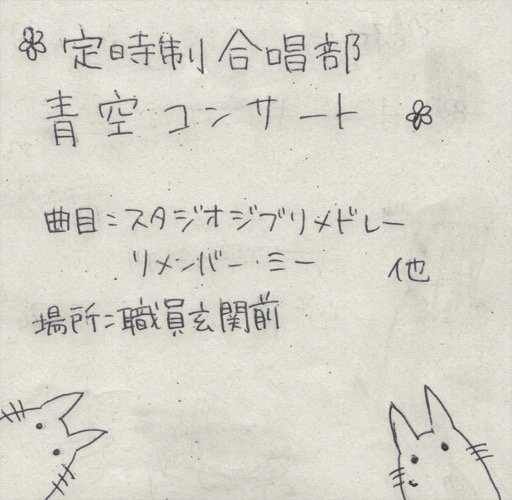 定時制合唱部
青空コンサート
曲目:スタジオジブリメドレー
リメンバー・ミー 他
場所:職員玄関前